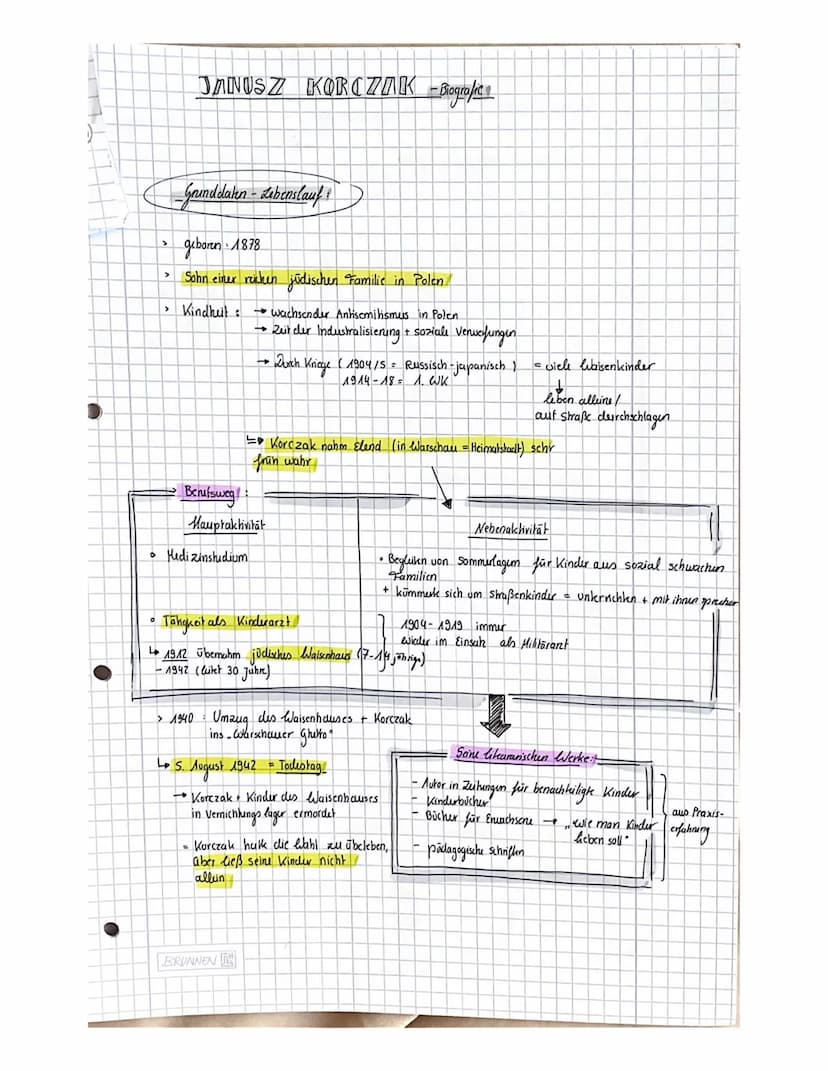 JANUSZ KORCZAK - Biografie
Grunddaten - Lebenslauf:
> geboren: 1878
> Sohn einer reichen jüdischen Familie in Polen
> Kindheit: → wachsender Antisemitismus in Polen
→ Zeit der Industrialisierung + soziale Verwerfungen
→ Durch Kriege (1904/5 = Russisch-japanisch) = viele Waisenkinder
1914-18 = 1. WK
↓
leben alleine/
auf Straße durchschlagen
↳ Korczak nahm Elend (in Warschau = Heimatstadt) sehr
früh wahr
> Berufsweg:
Hauptaktivität
Nebenaktivität
° Medizinstudium
• Begleiten von Sommerlagern für Kinder aus sozial schwachen
Familien
+ kümmerte sich um Straßenkinder = unterrichten + mit ihnen sprechen
° Tätigkeit als Kinderarzt
1904-1919 immer
wieder im Einsatz als Militärarzt
↳ 1912 übernahm jüdisches Waisenhaus (7-14 jährige)
- 1942 (leitet 30 Jahre)
> 1940: Umzug des Waisenhauses + Korczak
ins „Warschauer Ghetto"
↳ 5. August 1942 = Todestag
→ Korczak + Kinder des Waisenhauses
in Vernichtungslager ermordet
= Korczak hatte die Wahl zu übeleben,
aber ließ seine Kinder nicht
allein
Seine literarischen Werke:
- Autor in Zeitungen für benachteiligte Kinder
- Kinderbücher
- Bücher für Erwachsene → „wie man Kinder
lieben soll"
- pädagogische Schriften
aus Praxis-
erfahrung
BRUNNEN